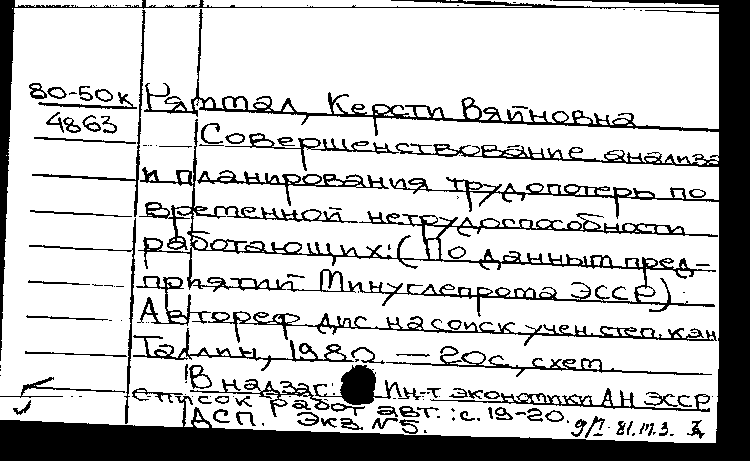 80-50к
4863
Ряттал, Керсти Вяйновна
Совершенствование анализа
и планирования трудопотерь по
временной нетрудоспособности
работающих: (По данным пред-
приятий Минуглепрома ЭССР).
Автореф дис. на соиск. учен. степ. кан
Таллин, 1980. — 20с., схем.
В надзаг.: Ин-т экономики АН ЭССР
список работ авт.: с. 19-20.
ДСП. Экз. №5.